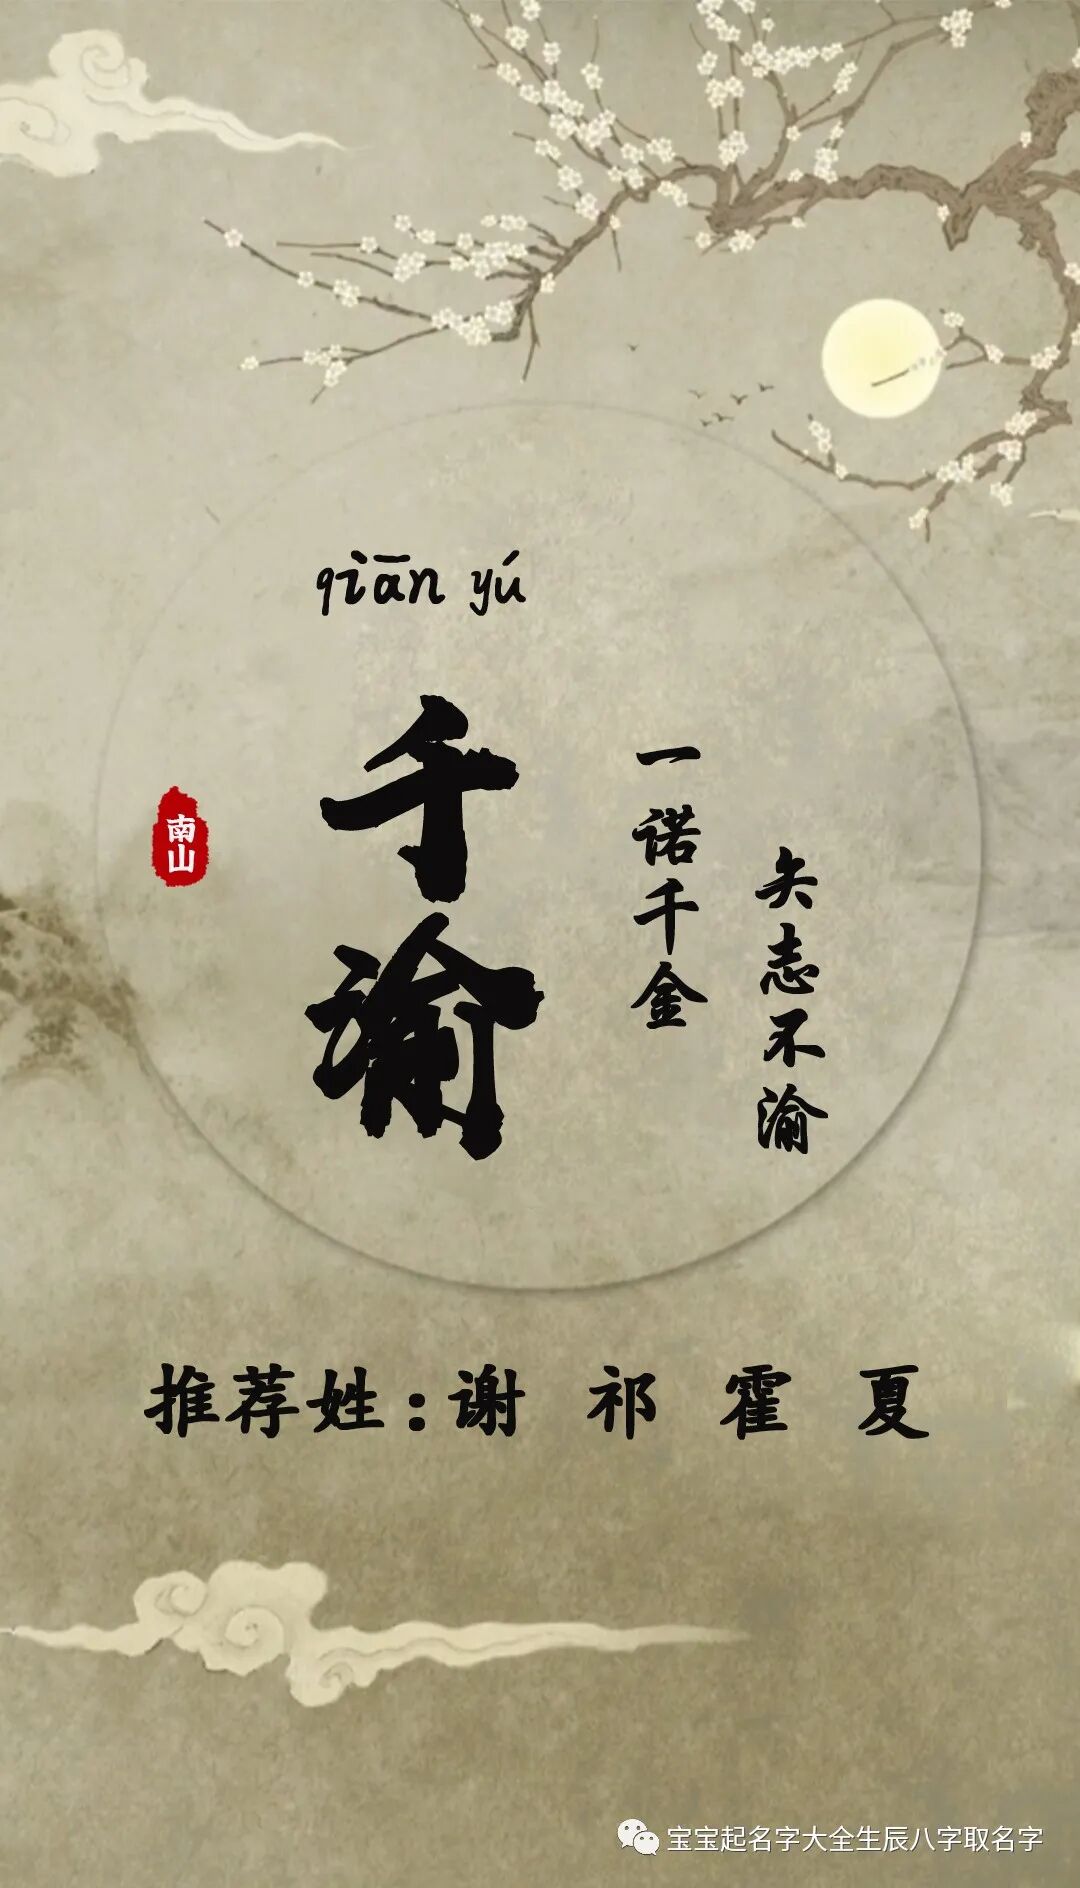 qiān yú
千渝
一诺千金
矢志不渝
南山
推荐姓：谢 祁 霍 夏
宝宝起名字大全生辰八字取名字